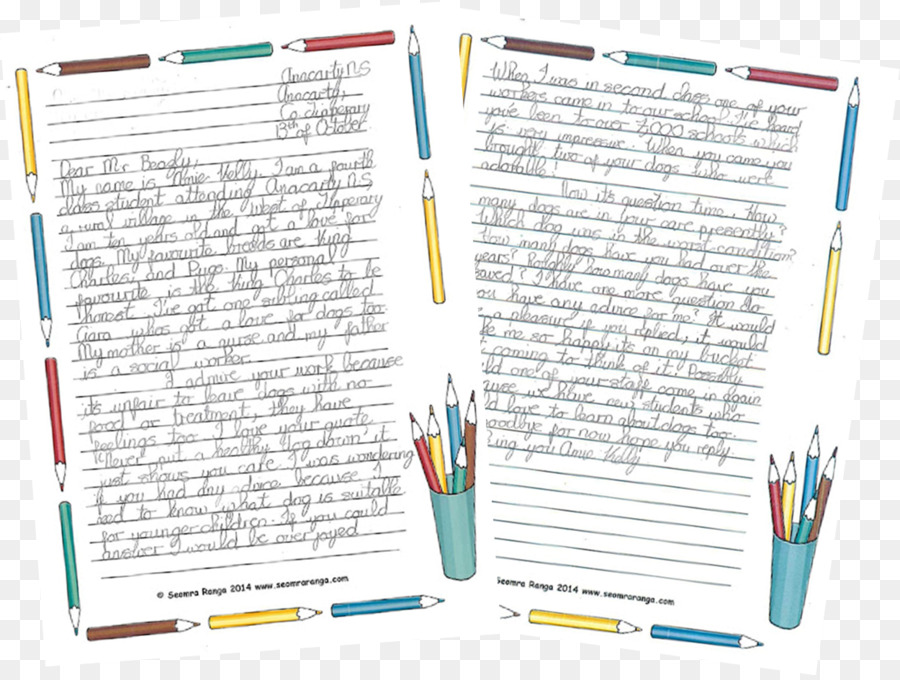 Anacarty N.S
Anacarty,
Co Tipperary
13th of October
Dear Mr Beadly,
My name is Amie Kelly. I am a fourth
class student attending Anacarty N.S,
a rural village in the West of Tipperary
I am ten years old and got a love for
dogs. My favourite breeds are King
Charles, and Pugs. My personal
favourite is the King Charles to be
honest, I've got one sibling called
Ciara who's got a love for dogs too.
My mother is a nurse and my father
is a social worker.
I admire your work because
its unfair to leave dogs with no
food or treatment, they have
feelings too. I love your quote
"Never put a healthy dog down" it
just shows you care. I was wondering
if you had any advice because I
need to know what dog is suitable
for younger children. If you could
answer I would be overjoyed.
© Seomra Ranga 2014 www.seomraranga.com
When I was in second class one of your
workers came in to our school. I've heard
you've been to over 2,000 schools which
is very impressive. When you came you
brought two of your dogs who were
adorable!
Now it's question time. How
many dogs are in your care presently?
Which dog was in the worst condition?
How many dogs have you had over the
years? Roughly how many dogs have you
saved? I have one more question do
you have any advice for me? It would
be a pleasure if you replied, it would
me so happy its on my bucket
coming to think of it. Possibly
one of your staff came in again
we have new students who
love to learn about dogs too.
Goodbye for now hope you reply
you Amie Kelly
Seomra Ranga 2014 www.seomraranga.com